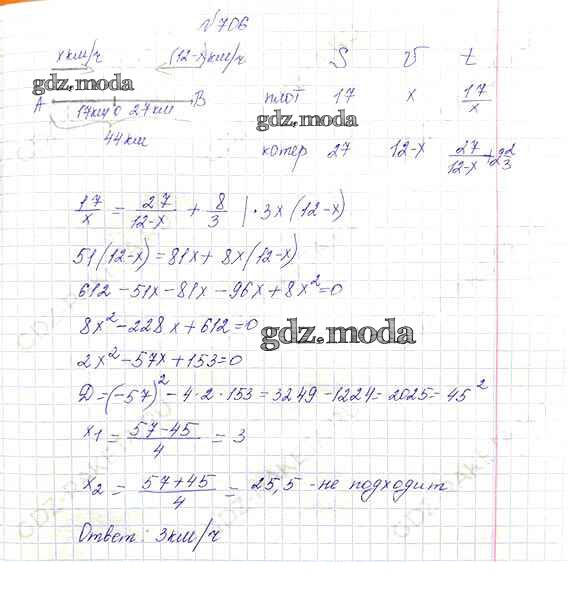 №706
x км/ч (12-x) км/ч S V t
gdz.moda
A 17км 27км B плот 17 x 17/x
gdz.moda
44км
катер 27 12-x 27/12-x + 2 2/3
17/x = 27/12-x + 8/3 | · 3x (12-x)
51(12-x) = 81x + 8x(12-x)
612 - 51x - 81x - 96x + 8x² = 0
8x² - 228x + 612 = 0
gdz.moda
2x² - 57x + 153 = 0
Д = (-57)² - 4 · 2 · 153 = 3249 - 1224 = 2025 = 45²
x₁ = 57-45/4 = 3
x₂ = 57+45/4 = 25,5 - не подходит
Ответ: 3км/ч